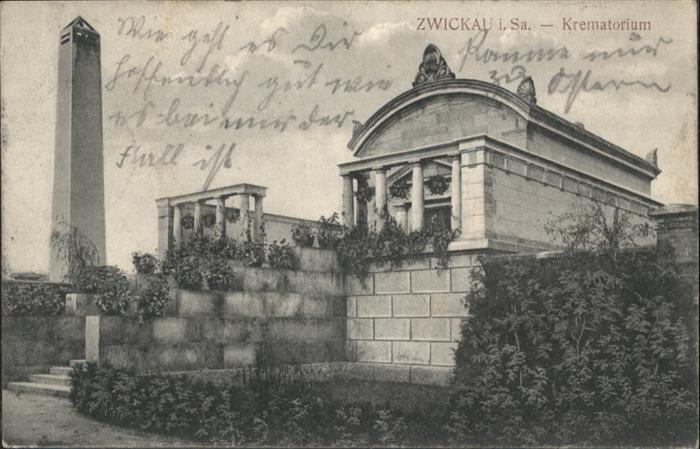 ZWICKAU i. Sa. — Krematorium
Wie geht es Dir
hoffendlich gut wie
es bei mir der
Fall ist
Kamme nur
zu Ostern